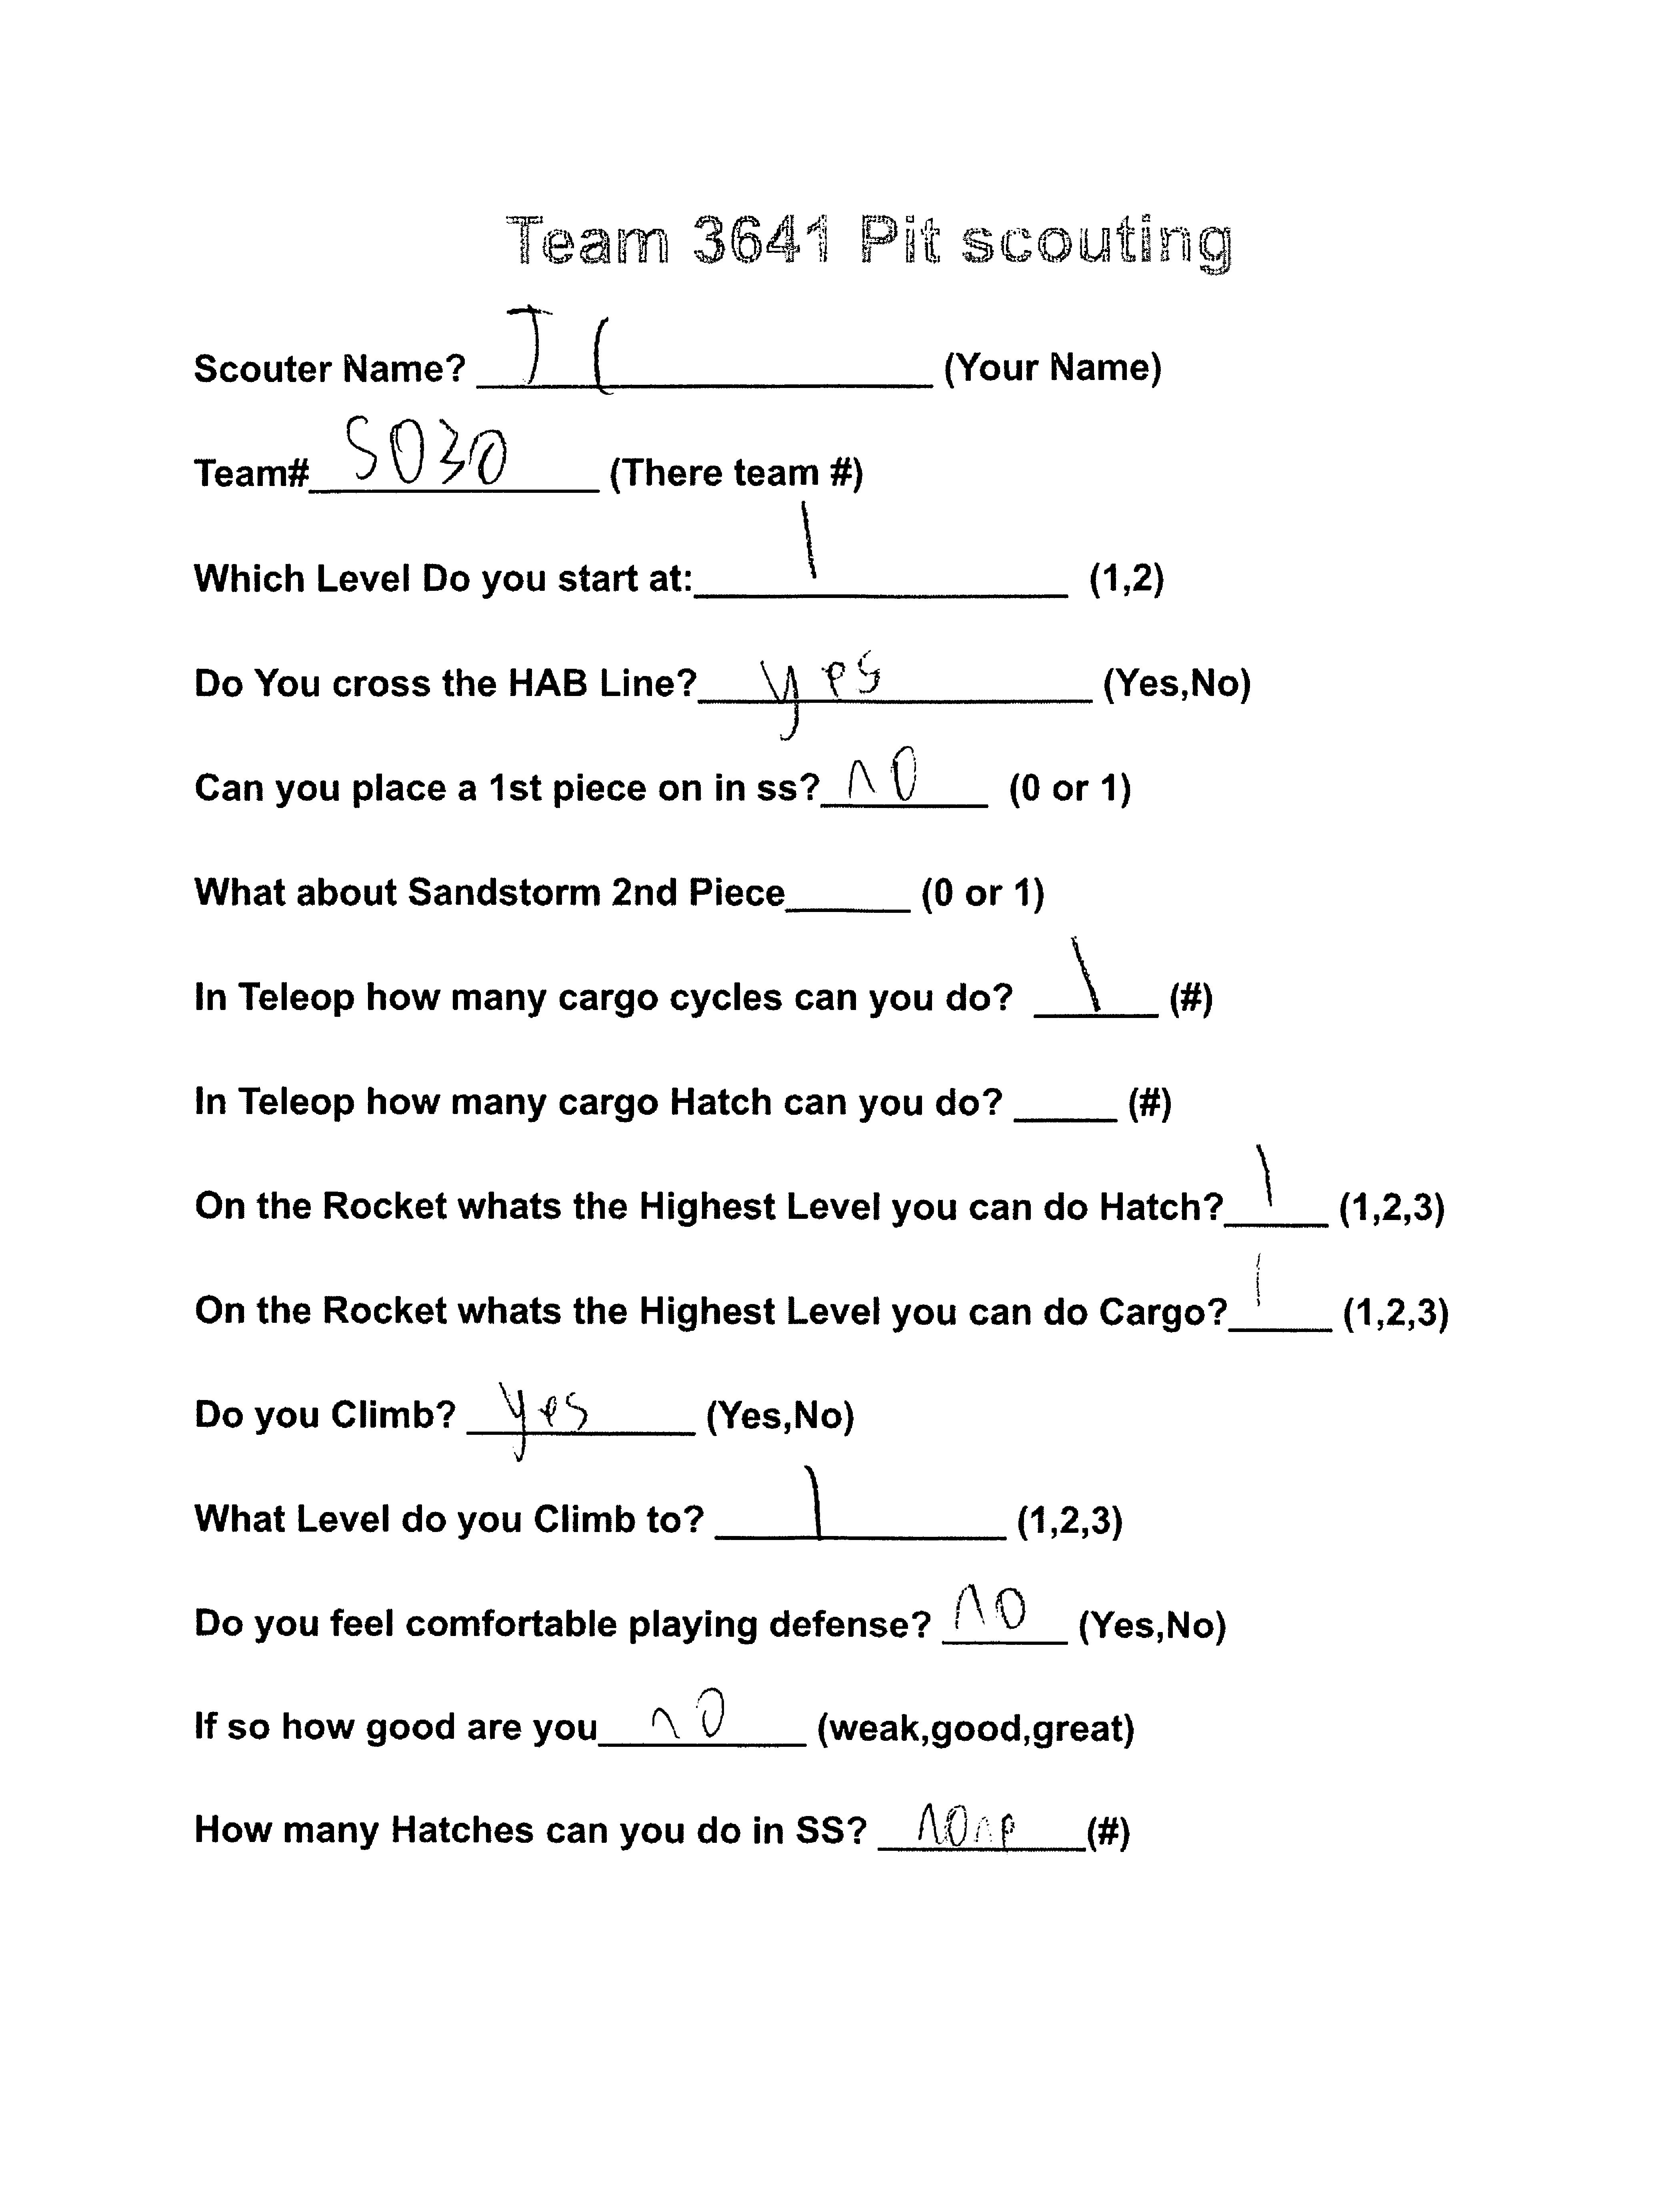 Team 3641 Pit scouting
Scouter Name? J C (Your Name)
Team# 5030 (There team #)
Which Level Do you start at: 1 (1,2)
Do You cross the HAB Line? yes (Yes,No)
Can you place a 1st piece on in ss? no (0 or 1)
What about Sandstorm 2nd Piece______ (0 or 1)
In Teleop how many cargo cycles can you do? 1 (#)
In Teleop how many cargo Hatch can you do? _____ (#)
On the Rocket whats the Highest Level you can do Hatch? 1 (1,2,3)
On the Rocket whats the Highest Level you can do Cargo? 1 (1,2,3)
Do you Climb? yes (Yes,No)
What Level do you Climb to? 1 (1,2,3)
Do you feel comfortable playing defense? no (Yes,No)
If so how good are you no (weak,good,great)
How many Hatches can you do in SS? none (#)